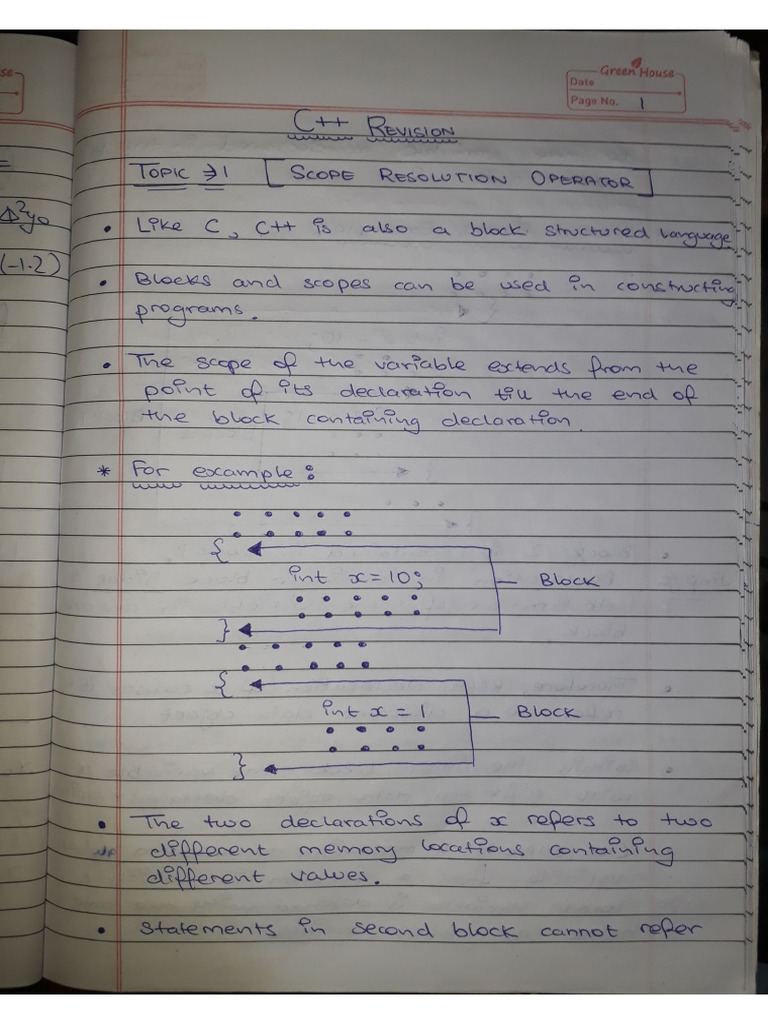 se
Green House
Date
Page No. 1
C++ REVISION
=
Δ²y₀
(-1.2)
TOPIC ⇒ 1 [SCOPE RESOLUTION OPERATOR]
• Like C, C++ is also a block structured language
• Blocks and scopes can be used in constructing
programs.
• The scope of the variable extends from the
point of its declaration till the end of
the block containing declaration.
* For example:
• • • • •
• • • • •
{
int x=10; Block
• • • • •
• • • • •
}
• • • • •
• • • • •
{
int x = 1 Block
• • • •
• • • •
}
• The two declarations of x refers to two
different memory locations containing
different values.
• Statements in second block cannot refer